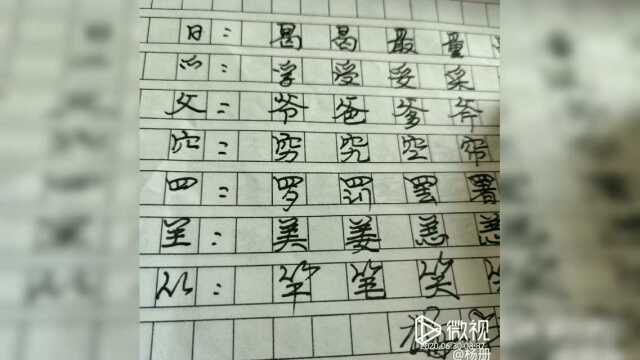 日：昌 曷 最 量
爫：浮 受 妥 采
父：爷 爸 爹 斧
穴：穷 究 空 帘
四：罗 罚 罢 署
𦍌：美 姜 恙
⺮：笔 笑
微视
2020.06.30 08:32
@杨册